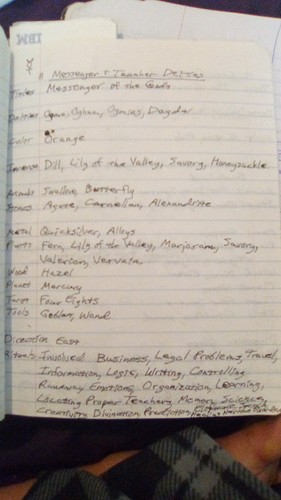 IBM
Messenger & Teacher Deities
Titles Messenger of the Gods
Deities Ogma, Oghma, Ogmios, Dagda
Color Orange
Incense Dill, Lily of the Valley, Savory, Honeysuckle
Animals Swallow, Butterfly
Stones Agate, Carnelian, Alexandrite
Metal Quicksilver, Alloys
Plants Fern, Lily of the Valley, Marjoram, Savory,
Valerian, Vervain
Wood Hazel
Planet Mercury
Tarot Four Eights
Tools Goblen, Wand
Direction East
Rituals Involved Business, Legal Problems, Travel,
Information, Logic, Writing, Controlling
Runaway Emotions, Organization, Learning,
Locating Proper Teachers, Memory, Science,
Creativity, Divination, Prediction,